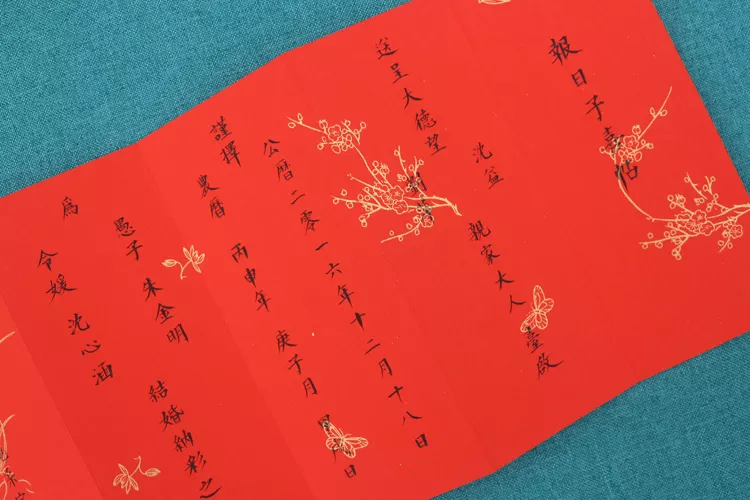 報日子喜帖
送呈大德望
沈益
親家大人 臺啟
謹擇
公曆二零一六年十二月十八日
農曆 丙申年 庚子月 日
為
愚子 朱金明
令媛 沈心涵
結婚納彩之